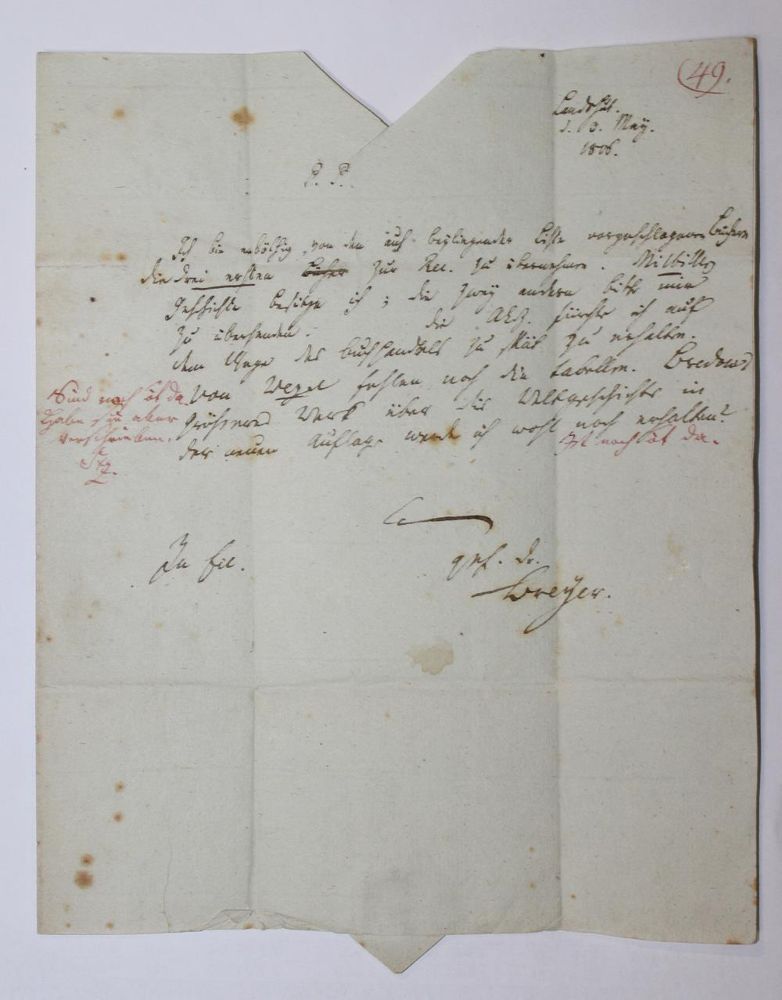 49.
Landshut.
d. 3. May.
1806.
P. P.
Ich bin erböthig, von den auf beyliegender Liste vorgeschlagenen Büchern
die drei ersten Bücher zur Rec. zu übernehmen. Milbillers
Geschichte besitze ich; die zwey andern bitte mir
zu übersenden. die ALZ. fürchte ich auf
dem Wege des Buchhandels zu spät zu erhalten.
Von fehlen noch die Tabellen. Bredows
größeres Werk über die Weltgeschichte in
der neuen Auflage werde ich wohl noch erhalten?
Sind noch nicht da
Habe sie aber
verschrieben.
Ist noch nicht da.
In Eil.
Prof. Dr.
Breyer.